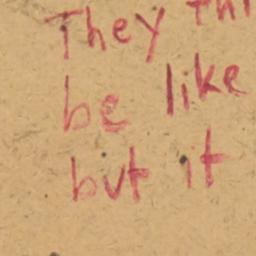 They thi
be like
but it